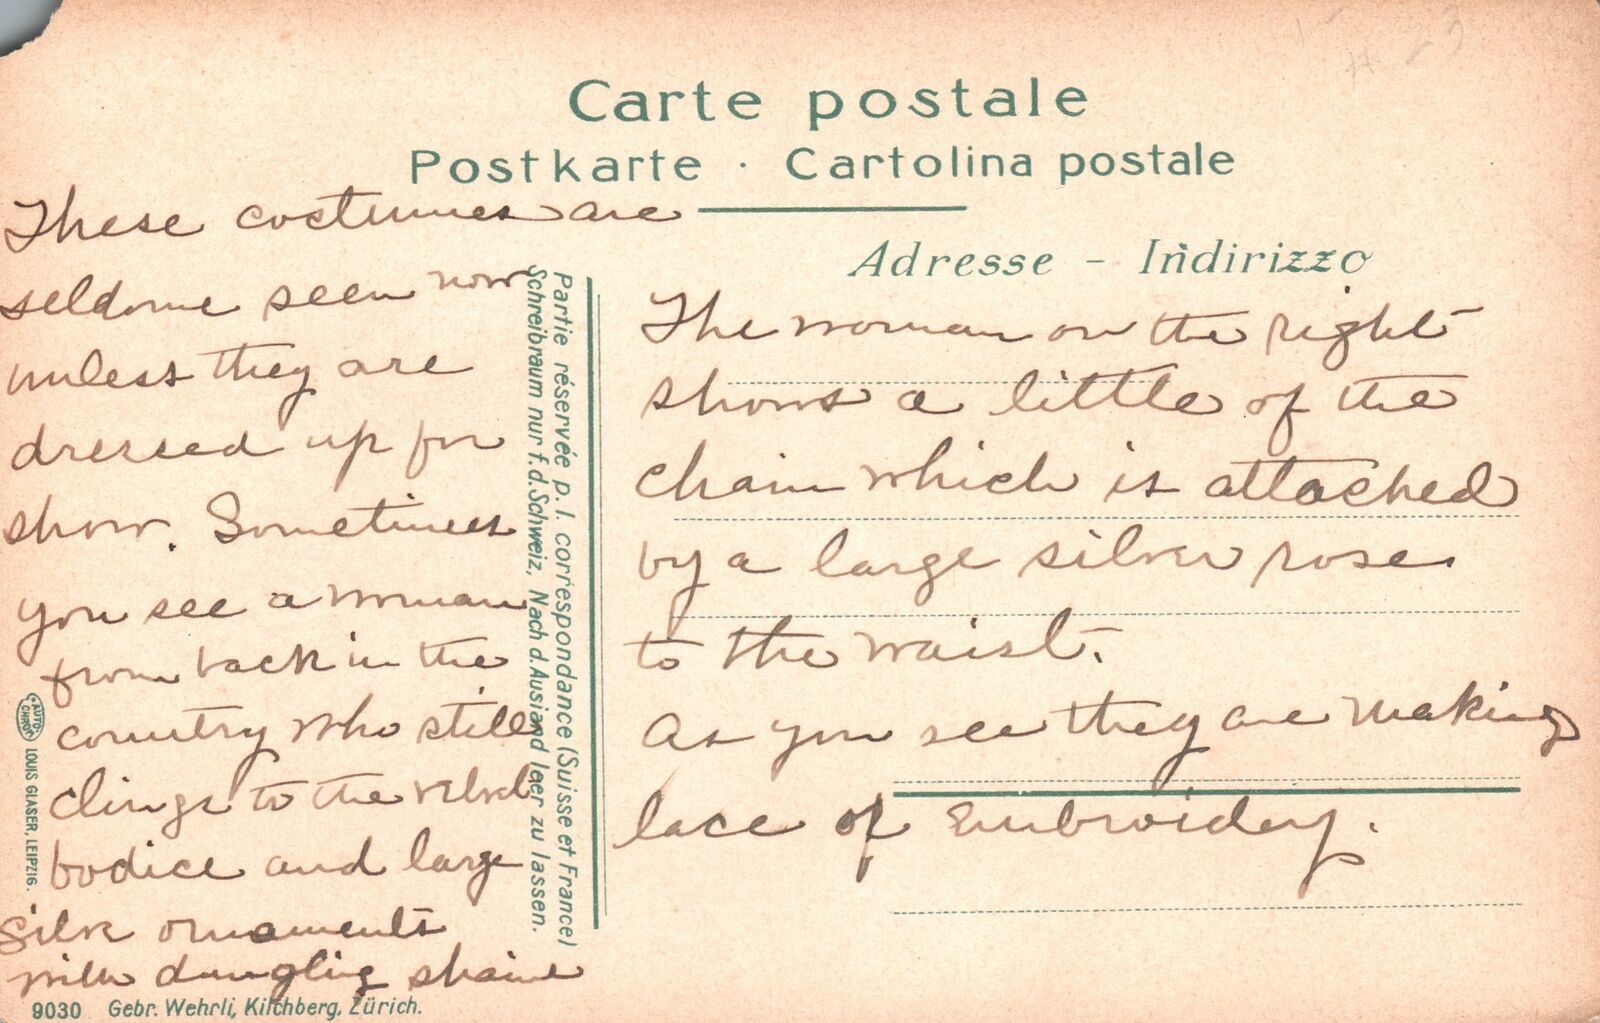 Carte postale
Postkarte · Cartolina postale
Adresse - Indirizzo
These costumes are
seldome seen now
unless they are
dressed up for
show. Sometimes
you see a woman
from back in the
country who still
clings to the velvet
bodice and large
silve ornaments
with dangling shains
The woman on the right
shows a little of the
chain which is attached
by a large silver rose
to the waist.
As you see they are making
lace of Embroidery.
Partie réservée p. l. correspondance (Suisse et France)
Schreibraum nur f. d. Schweiz, Nach d. Ausland leer zu lassen.
AUTO CHROM
LOUIS GLASER, LEIPZIG.
9030 Gebr. Wehrli, Kilchberg, Zürich.